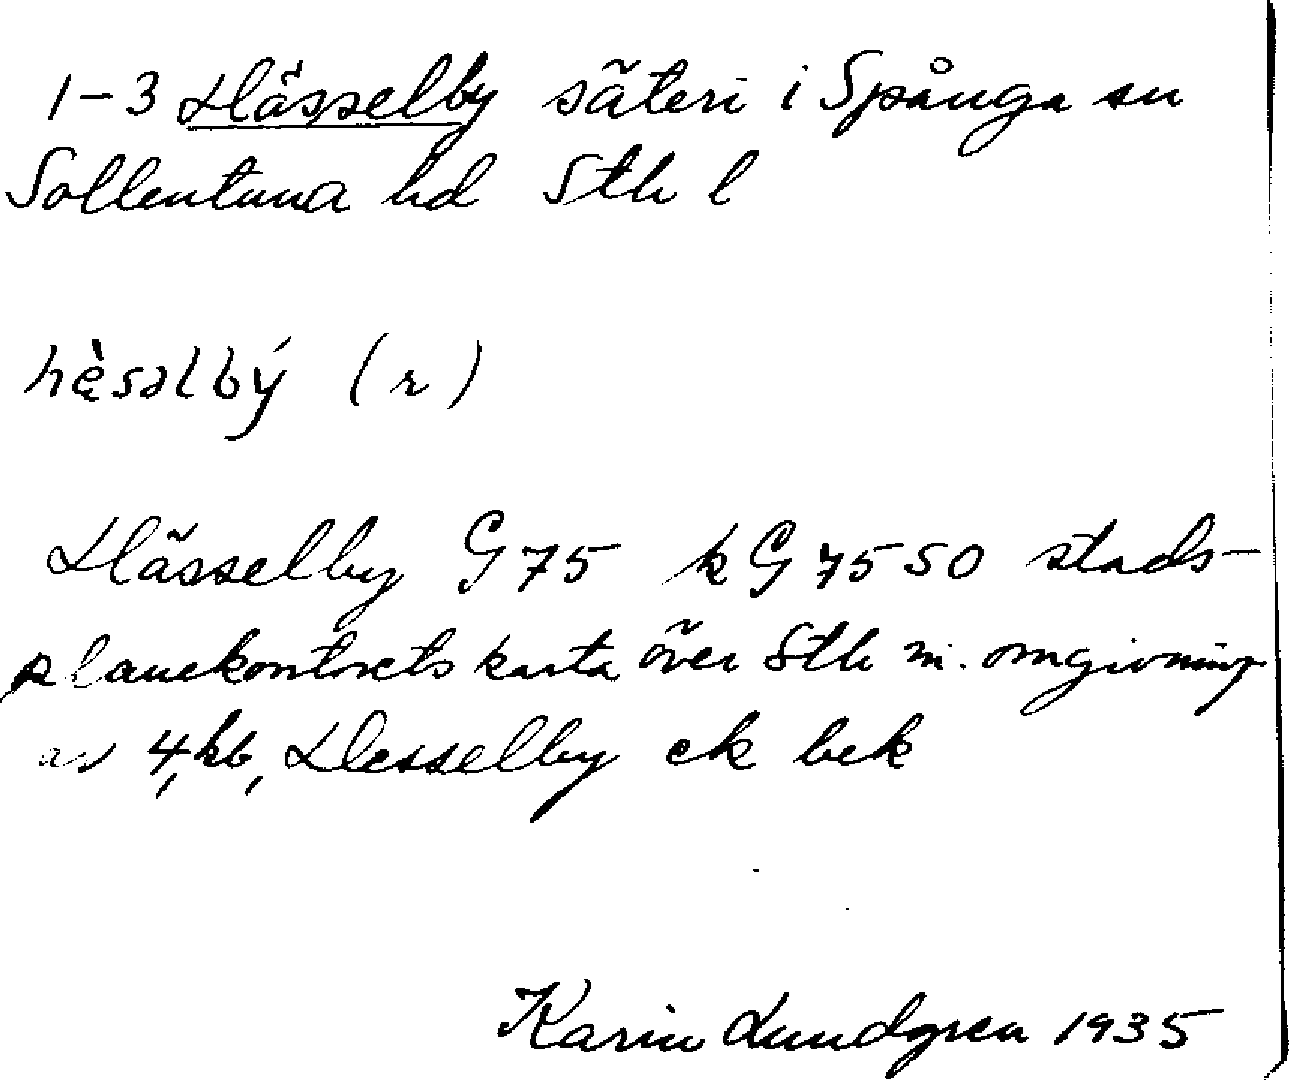 1-3 Hässelby säteri i Spånga sn
Sollentuna hd Sth l
hèsəlbý (r)
Hässelby G 75 k G 7550 stads-
planekontorets karta över Sth m. omgivning
av 4, hb, Hesselby ek bek
Karin Lundgren 1935